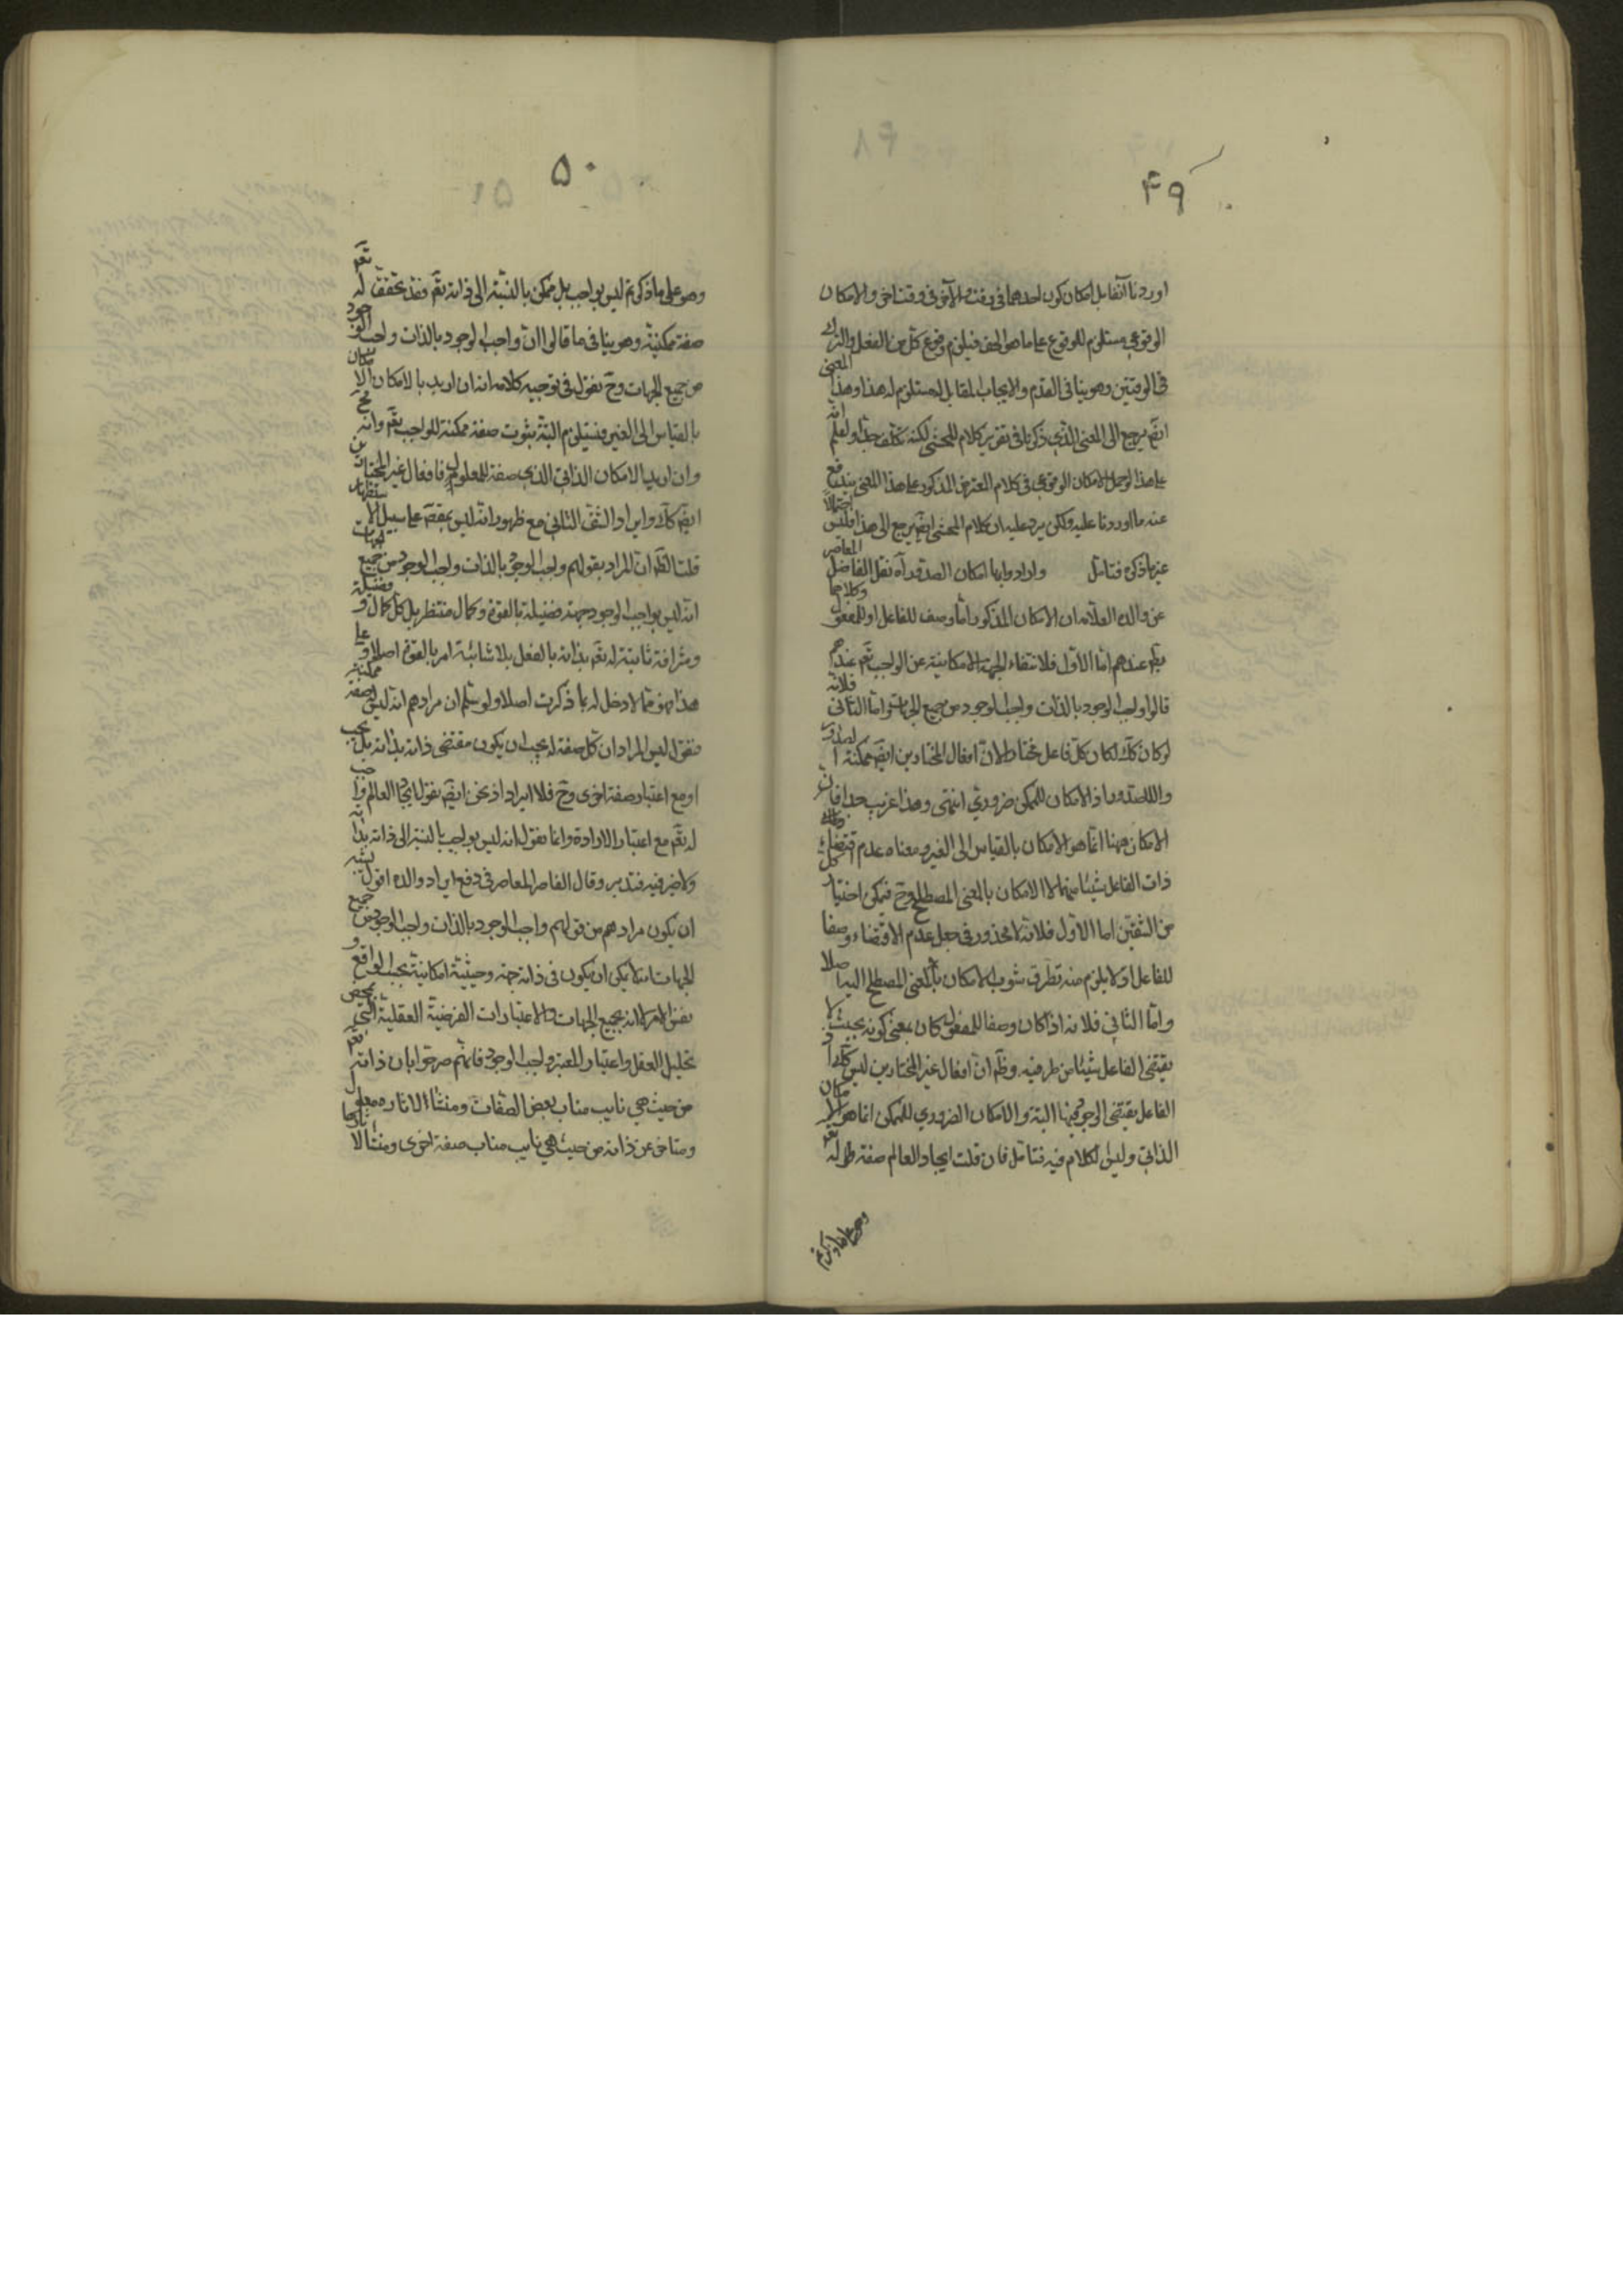 ۴۹
اوردنا آنفا بل امكان كون احدهما فی وقت والآخر فی وقت اخر والامكان
الوقوعی مستلزم للوقوع علی ما هو الحق فیلزم وقوع كل من الفعل والترك
فی الوقتین وهو ینافی القدم والایجاب المقابل المستلزم له هذا وهذا المعنی
ایضم یرجع الی المعنی الذی ذكرنا فی تقریر كلام المحشی لكنه تكلف جدا ولعلم انه
علی هذا لو حمل الامكان الوقوعی فی كلام المعترض المذكور علی هذا المعنی یندفع
عنه ما اوردنا علیه ولكن یرد علیه ان كلام المحشی ایضم یرجع الی هذا فلیس احتمالا
غیر ما ذكره فتامل وارادوا بها امكان الصدور آه نقل الفاضل المعاصر
عن والده العلامه ان الامكان المذكور اما وصف للفاعل او للمفعول وكلاهما
عندهم اما الاول فلانتفاء الجهة الامكانیة عن الواجب تعم عندهم
قالوا واجب الوجود بالذات واجب الوجود من جمیع الجهات واما الثانی فلانه
لو كان كك لكان كل فاعل مختارا لان افعال المختارین ایضم ممكنة الصدور
واللاصدور اذ الامكان للممكن ضروری انتهی وهذا غریب جدا فان
الامكان ههنا انما هو الامكان بالقیاس الی الغیر ومعناه عدم اقتضاء
ذات الفاعل شیئا منهما لا الامكان بالمعنی المصطلح وح فیمكن اختیار كل
من الشقین اما الاول فلانه لا محذور فی جعل عدم الاقتضاء وصفا
للفاعل اذ لا یلزم منه تطرق شوب الامكان بالمعنی المصطلح الیه اصلا
واما الثانی فلانه اذا كان وصفا للمفعول كان بمعنی كونه بحیث لا
یقتضی الفاعل شیئا من طرفیه وظم ان افعال غیر المختارین لیس كك اذ
الفاعل یقتضی الوجود فیها البتة والامكان الضروری للممكن انما هو الامكان
الذاتی ولیس الكلام فیه فتامل فان قلت ایجاد العالم صفة له تعم
وهو علی ما ذكرتم
۵۰
وهو علی ما ذكرتم لیس بواجب بل ممكن بالنسبة الی ذاته تعم فقد تحقق له تعم
صفة ممكنة وهو ینافی ما قالوا ان واجب الوجود بالذات واجب الوجود
من جمیع الجهات وح نقول فی توجیه كلامه انه ان ارید بالامكان الامكان
بالقیاس الی الغیر فیستلزم البتة ثبوت صفة ممكنة للواجب تعم وانه مح
وان ارید الامكان الذاتی الذی صفة للمعلول فافعال غیر المختارین
ایضم كك وایراد الشق الثانی مع ظهور انه لیس بمقصم علی سبیل الاستظهار
قلت الظم ان المراد بقولهم واجب الوجود بالذات واجب الوجود من جمیع الجهات
انه لیس بواجب الوجود جهة فضیلة بالقوة وكمال منتظر بل كل كمال وفضیلة
وشرافة ثابتة له تعم بذاته بالفعل بلا شائبة امر بالقوة اصلا وعلی
هذا فهو مما لا دخل له بما ذكرت اصلا ولو سلم ان مرادهم انه لیس له صفة ممكنة
فنقول لیس المراد ان كل صفة له یجب ان یكون مقتضی ذاته بذاته بل یجب
او مع اعتبار صفة اخری وح فلا ایراد اذ نحن ایضم نقول ایجاد العالم واجب
له تعم مع اعتبار الارادة وانما نقول انه لیس بواجب بالنسبة الی ذاته بذاته
ولا ضیر فیه فتدبر وقال الفاضل المعاصر فی دفع ایراد والده اقول یشبه
ان یكون مرادهم من قولهم واجب الوجود بالذات واجب الوجود من جمیع
الجهات انه لا یمكن ان یكون فی ذاته جهة وحیثیة امكانیة بحسب الواقع و
نفس الامر لا انه بجمیع الجهات والاعتبارات الفرضیة العقلیة التی بمحض
تحلیل العقل واعتبار المعتبر واجب الوجود فانهم صرحوا بان ذاته تعم
من حیث هی نایب مناب بعض الصفات ومنشأ الاثاره معلول
ومتاخر عن ذاته من حیث هی نایب مناب صفة اخری ومنشأ لآثارها